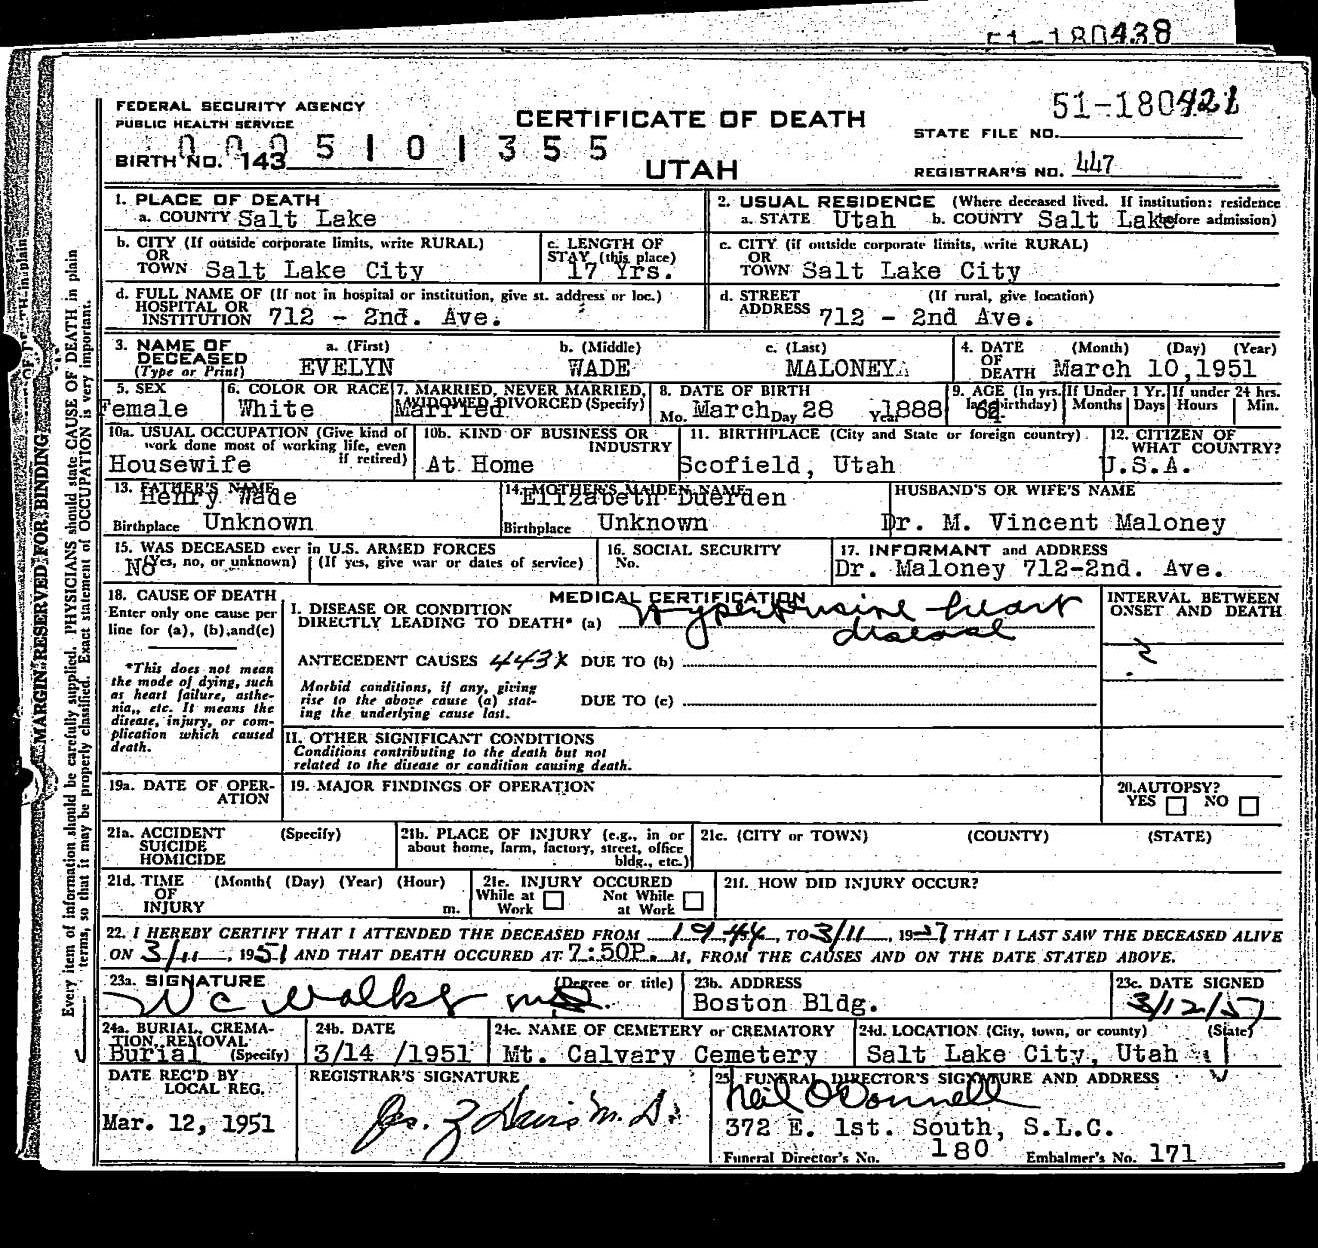 51-180438
FEDERAL SECURITY AGENCY
PUBLIC HEALTH SERVICE
CERTIFICATE OF DEATH
51-180421
STATE FILE NO.
0005101355
BIRTH NO. 143
UTAH
REGISTRAR'S NO. 447
1. PLACE OF DEATH
a. COUNTY Salt Lake
2. USUAL RESIDENCE (Where deceased lived. If institution: residence
a. STATE Utah b. COUNTY Salt Lake before admission)
b. CITY (If outside corporate limits, write RURAL)
OR
TOWN Salt Lake City
c. LENGTH OF
STAY (this place)
17 Yrs.
c. CITY (if outside corporate limits, write RURAL)
OR
TOWN Salt Lake City
d. FULL NAME OF (If not in hospital or institution, give st. address or loc.)
HOSPITAL OR
INSTITUTION 712 - 2nd. Ave.
d. STREET (If rural, give location)
ADDRESS 712 - 2nd Ave.
3. NAME OF
DECEASED
(Type or Print)
a. (First)
EVELYN
b. (Middle)
WADE
c. (Last)
MALONEY
4. DATE (Month) (Day) (Year)
OF
DEATH March 10,1951
5. SEX
Female
6. COLOR OR RACE
White
7. MARRIED, NEVER MARRIED,
WIDOWED, DIVORCED (Specify)
Married
8. DATE OF BIRTH
Mo. March Day 28 Year 1888
9. AGE (In yrs.
last birthday)
If Under 1 Yr.
Months Days
If under 24 hrs.
Hours Min.
10a. USUAL OCCUPATION (Give kind of
work done most of working life, even
if retired)
Housewife
10b. KIND OF BUSINESS OR
INDUSTRY
At Home
11. BIRTHPLACE (City and State or foreign country)
Scofield, Utah
12. CITIZEN OF
WHAT COUNTRY?
U.S.A.
13. FATHER'S NAME
Henry Wade
Birthplace Unknown
14. MOTHER'S MAIDEN NAME
Elizabeth Duerden
Birthplace Unknown
HUSBAND'S OR WIFE'S NAME
Dr. M. Vincent Maloney
15. WAS DECEASED ever in U.S. ARMED FORCES
(Yes, no, or unknown) (If yes, give war or dates of service)
No
16. SOCIAL SECURITY
No.
17. INFORMANT and ADDRESS
Dr. Maloney 712-2nd. Ave.
18. CAUSE OF DEATH
Enter only one cause per
line for (a), (b), and (c)
*This does not mean
the mode of dying, such
as heart failure, asthe-
nia,, etc. It means the
disease, injury, or com-
plication which caused
death.
MEDICAL CERTIFICATION
I. DISEASE OR CONDITION
DIRECTLY LEADING TO DEATH* (a) Hypertensive heart
disease
ANTECEDENT CAUSES 443X DUE TO (b)
Morbid conditions, if any, giving
rise to the above cause (a) stat-
ing the underlying cause last.
DUE TO (c)
II. OTHER SIGNIFICANT CONDITIONS
Conditions contributing to the death but not
related to the disease or condition causing death.
INTERVAL BETWEEN
ONSET AND DEATH
?
19a. DATE OF OPER-
ATION
19. MAJOR FINDINGS OF OPERATION
20. AUTOPSY?
YES NO
21a. ACCIDENT (Specify)
SUICIDE
HOMICIDE
21b. PLACE OF INJURY (e.g., in or
about home, farm, factory, street, office
bldg., etc.)
21c. (CITY or TOWN) (COUNTY) (STATE)
21d. TIME (Month( (Day) (Year) (Hour)
OF
INJURY m.
21e. INJURY OCCURED
While at Work Not While at Work
21f. HOW DID INJURY OCCUR?
22. I HEREBY CERTIFY THAT I ATTENDED THE DECEASED FROM 1944, TO 3/11, 1951 THAT I LAST SAW THE DECEASED ALIVE
ON 3/11, 1951 AND THAT DEATH OCCURED AT 7:50P. M, FROM THE CAUSES AND ON THE DATE STATED ABOVE.
23a. SIGNATURE (Degree or title)
W C Walker MD
23b. ADDRESS
Boston Bldg.
23c. DATE SIGNED
3/12/51
24a. BURIAL, CREMA-
TION, REMOVAL
(Specify)
Burial
24b. DATE
3/14 /1951
24c. NAME OF CEMETERY or CREMATORY
Mt. Calvary Cemetery
24d. LOCATION (City, town, or county) (State)
Salt Lake City, Utah
DATE REC'D BY
LOCAL REG.
Mar. 12, 1951
REGISTRAR'S SIGNATURE
Jas. Z Davis M.D.
25. FUNERAL DIRECTOR'S SIGNATURE AND ADDRESS
Neil O'Donnell
372 E. 1st. South, S.L.C.
Funeral Director's No. 180 Embalmer's No. 171
MARGIN RESERVED FOR BINDING
Every item of information should be carefully supplied. PHYSICIANS should state CAUSE OF DEATH in plain
terms, so that it may be properly classified. Exact statement of OCCUPATION is very important.